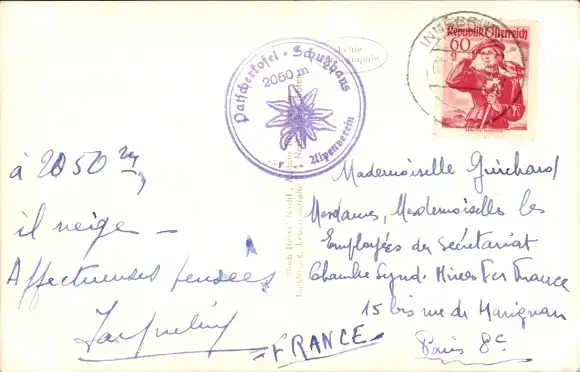 Echte
Photographie
INNSBRUCK
Republik Österreich
60
g
Patscherkofel - Schutzhaus
2050 m
Alpenverein
à 2050 m,
il neige -
Affectueuses pensées
Jacqueline
Mademoiselle Guichard
Mesdames, Mesdemoiselles les
Employées du Secrétariat
Chambre Synd. Mines Fer France
15 bis rue de Marignan
Paris 8e
- FRANCE -